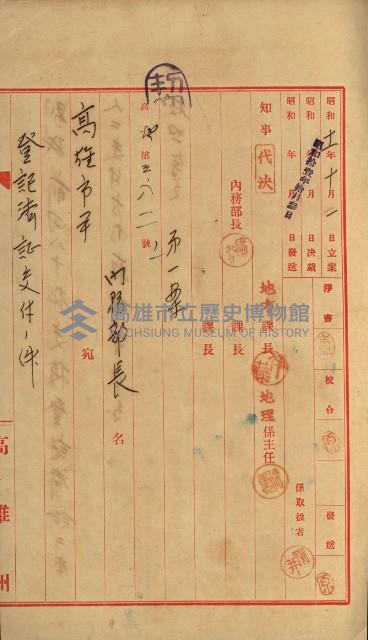 昭和十一年十月二日立案 淨書 校合 發送
昭和 年 月 日決裁
昭和拾壹年拾月參日
昭和 年 月 日發送 係取扱者
知事 代決 地方課長 地理係主任
內務部長 課長
課長
第一案
高地第三六八二號ノ
內務部長名
高雄市尹 宛
登記濟證交付ノ件
高雄州
高雄市立歷史博物館
KAOHSIUNG MUSEUM OF HISTORY